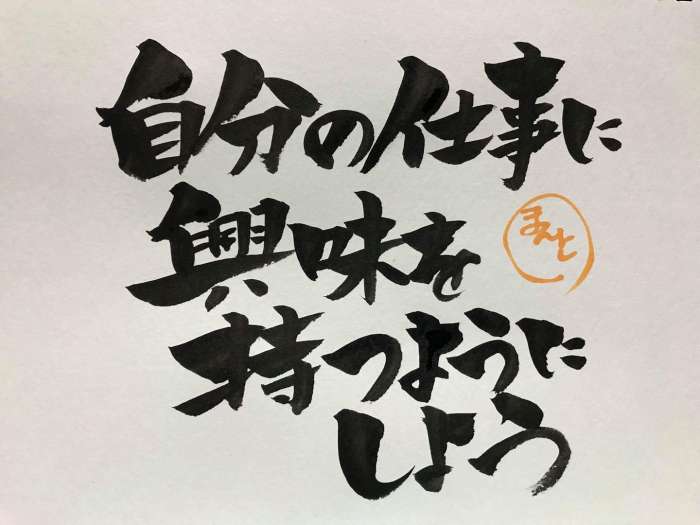 自分の仕事に
興味を
持つように
しよう
まんと